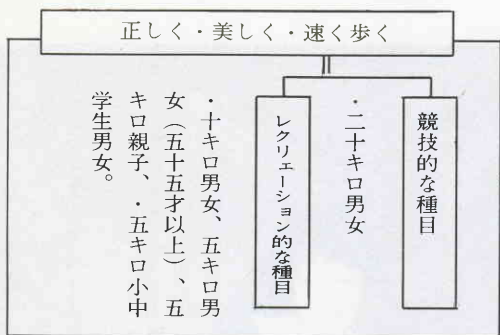 正しく・美しく・速く歩く
競技的な種目
・二十キロ男女
レクリェーション的な種目
・十キロ男女、五キロ男
女（五十五才以上）、五
キロ親子、・五キロ小中
学生男女。